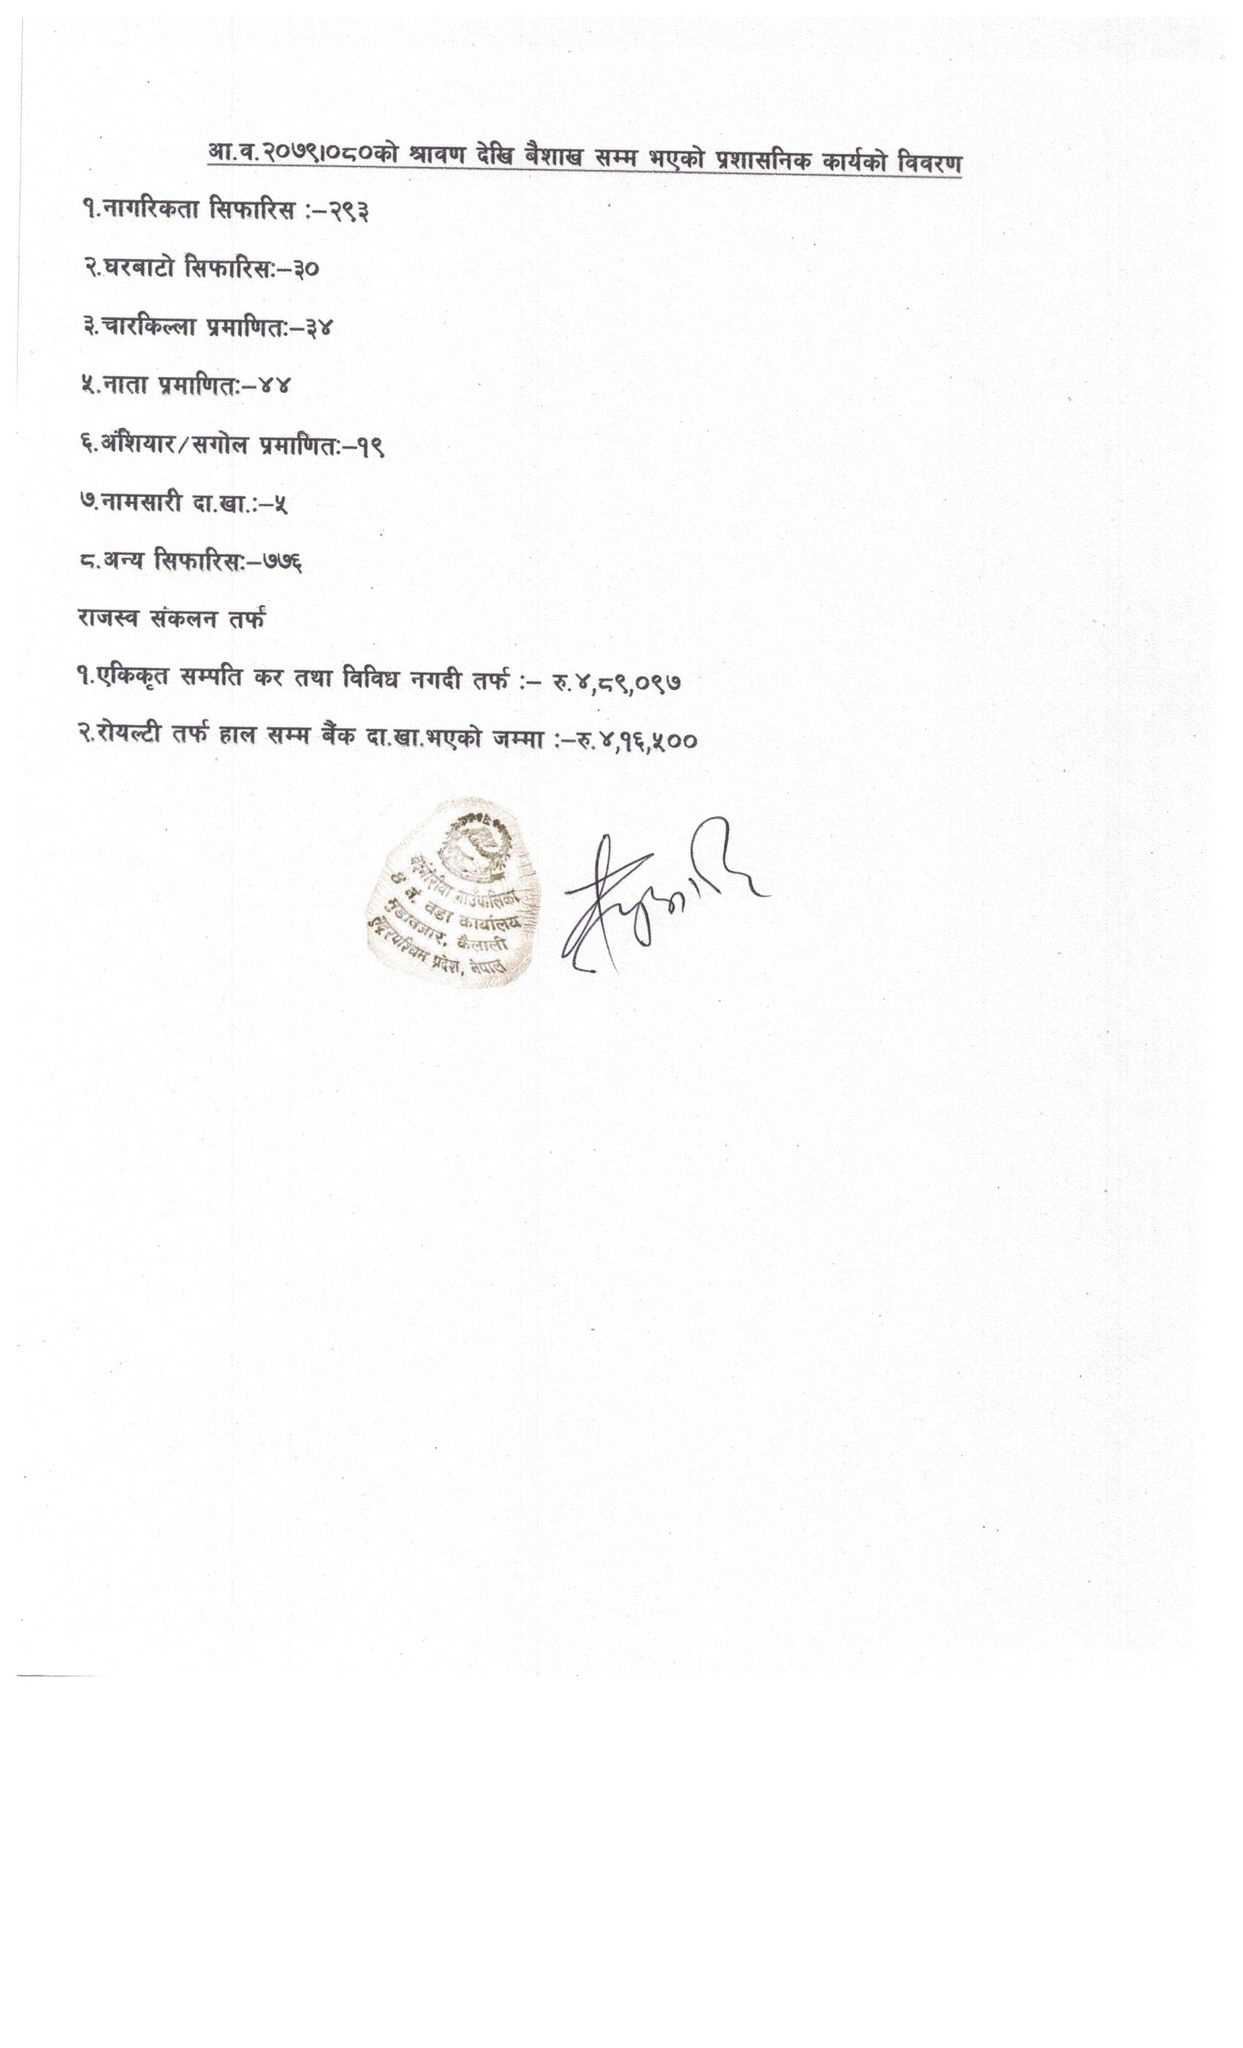 आ.व.२०७९।०८०को श्रावण देखि बैशाख सम्म भएको प्रशासनिक कार्यको विवरण
१.नागरिकता सिफारिस :–२९३
२.घरबाटो सिफारिस:–३०
३.चारकिल्ला प्रमाणित:–३४
५.नाता प्रमाणित:–४४
६.अंशियार/सगोल प्रमाणित:–१९
७.नामसारी दा.खा.:–५
८.अन्य सिफारिस:–७७६
राजस्व संकलन तर्फ
१.एकिकृत सम्पति कर तथा विविध नगदी तर्फ :– रु.४,८९,०९७
२.रोयल्टी तर्फ हाल सम्म बैंक दा.खा.भएको जम्मा :–रु.४,१६,५००
गाउँपालिका
नं. वडा कार्यालय
कैलाली
सुदूरपश्चिम प्रदेश, नेपाल